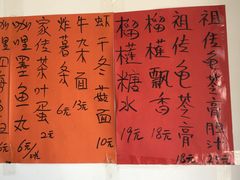 祖传龟苓膏胆汁
祖传龟苓膏 18元
榴槤飘香 18元
榴槤糖水 19元
虾干冬菇面 10元
牛杂面 13元
炸薯条 6元
家传茶叶蛋 2元
咖喱墨鱼丸 6元
咖喱海